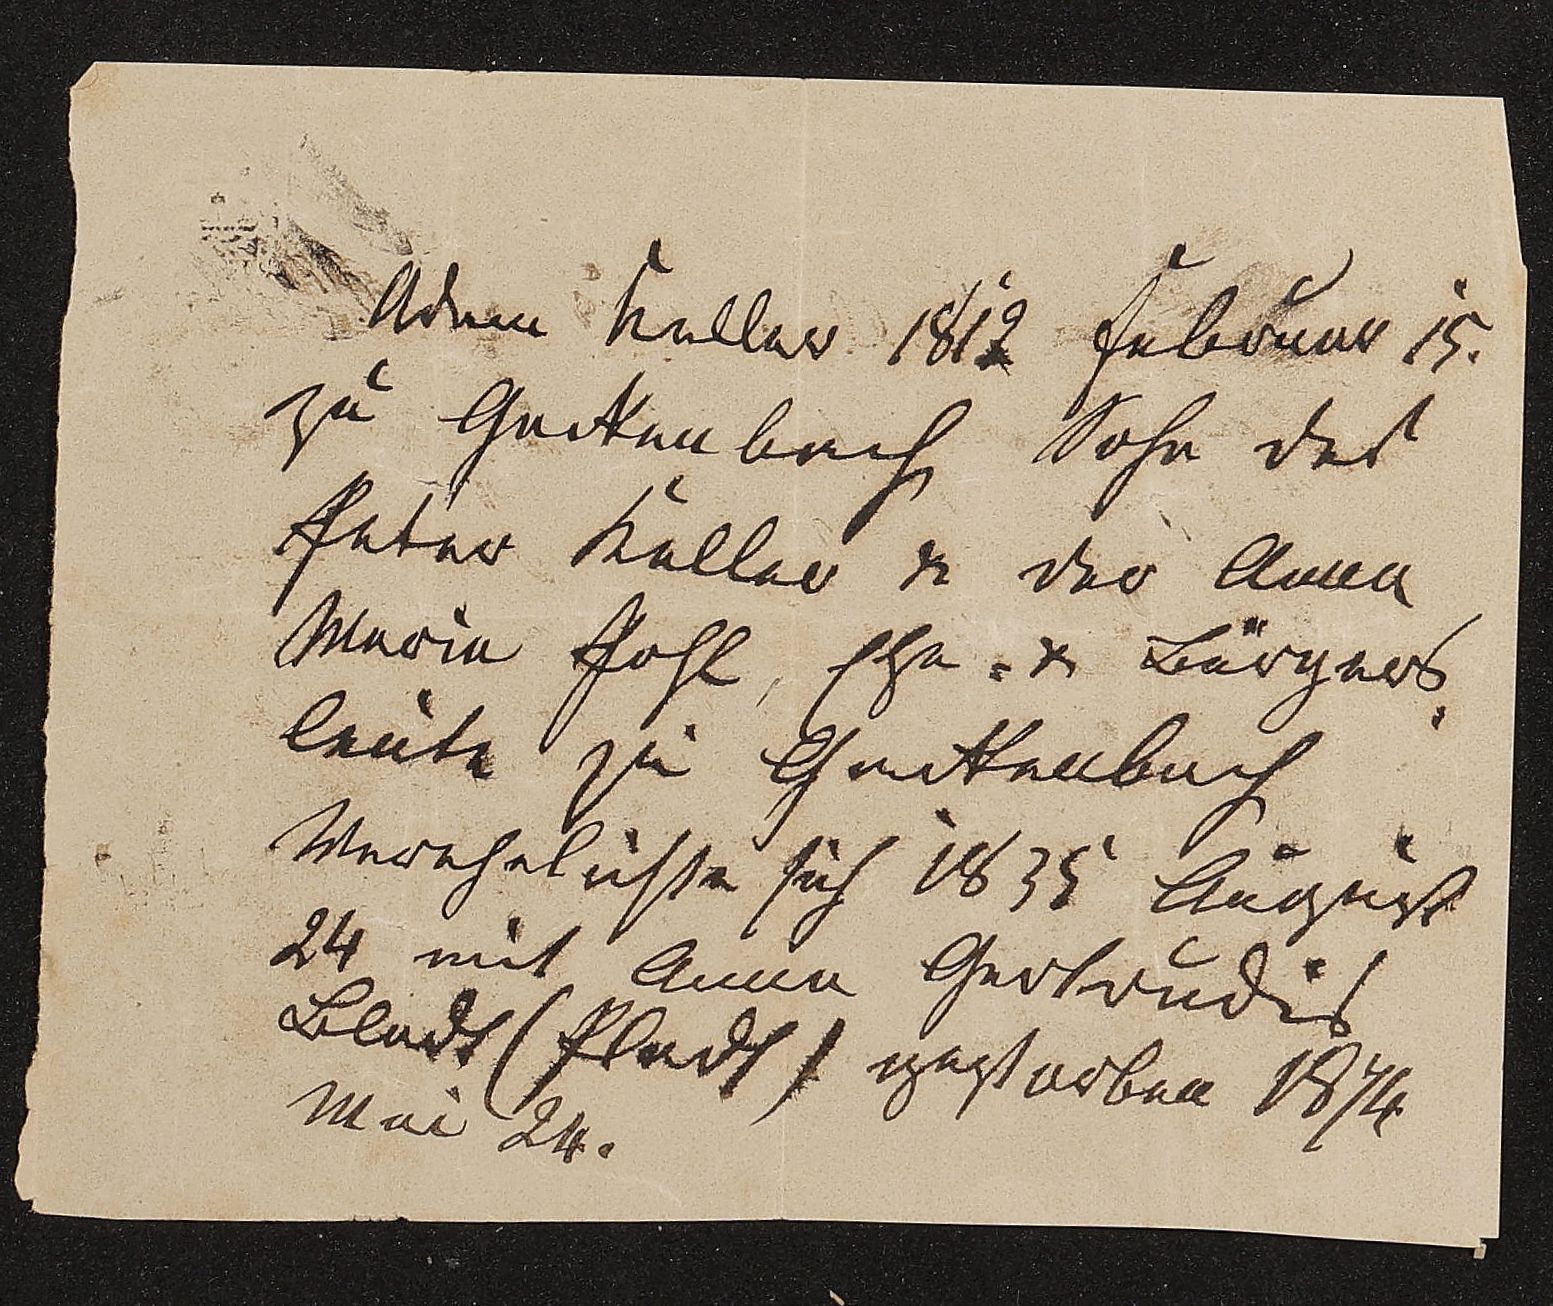 Adam Keller 1812 Februar 15.
zu Gackenbach Sohn des
Peter Keller & der Anna
Maria Pohl, Ehe- & Bürgers-
leute zu Gackenbach
Verehelichte sich 1835 August
24 mit Anna Gertrudis
Bladt (Pladt) gestorben 1874
Mai 24.